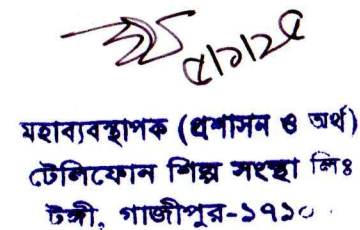 ৫/১/২৫
মহাব্যবস্থাপক (প্রশাসন ও অর্থ)
টেলিফোন শিল্প সংস্থা লিঃ
টঙ্গী, গাজীপুর-১৭১০